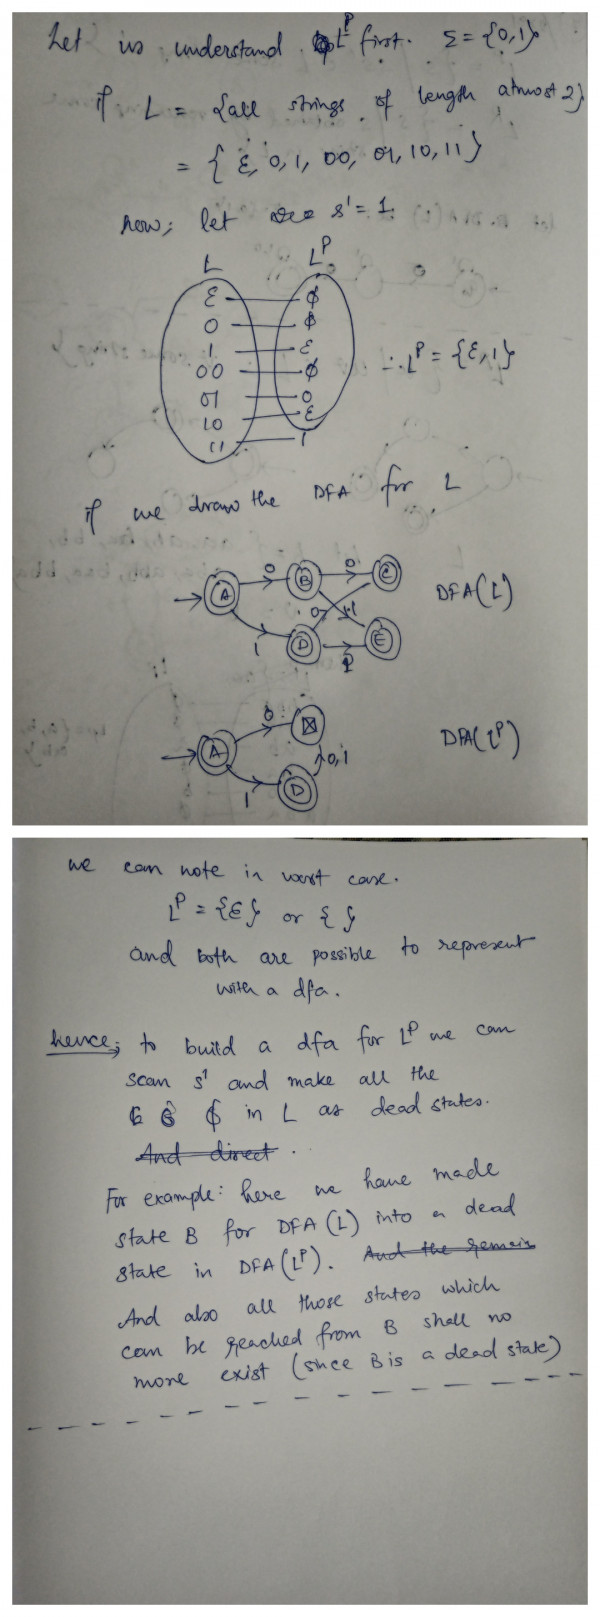 Let us understand L^P first. Σ = {0,1}
if L = {all strings of length atmost 2}
= { ε, 0, 1, 00, 01, 10, 11 }
now; let s' = 1.
L L^P
ε ϕ
0 ϕ
1 ε
00 ϕ
01 0
10 ε
11 1
∴ L^P = {ε, 1}
if we draw the DFA for L
A 0 B 0 C
1 D 0 1 E 1
DFA(L)
A 0 ☒
1 D 0,1
DFA(L^P)
we can note in worst case.
L^P = {ε} or { }
and both are possible to represent
with a dfa.
hence; to build a dfa for L^P we can
scan s' and make all the
ϕ in L as dead states.
And direct.
For example: here we have made
state B for DFA(L) into a dead
state in DFA(L^P). And the remain
And also all those states which
can be reached from B shall no
more exist (since B is a dead state)